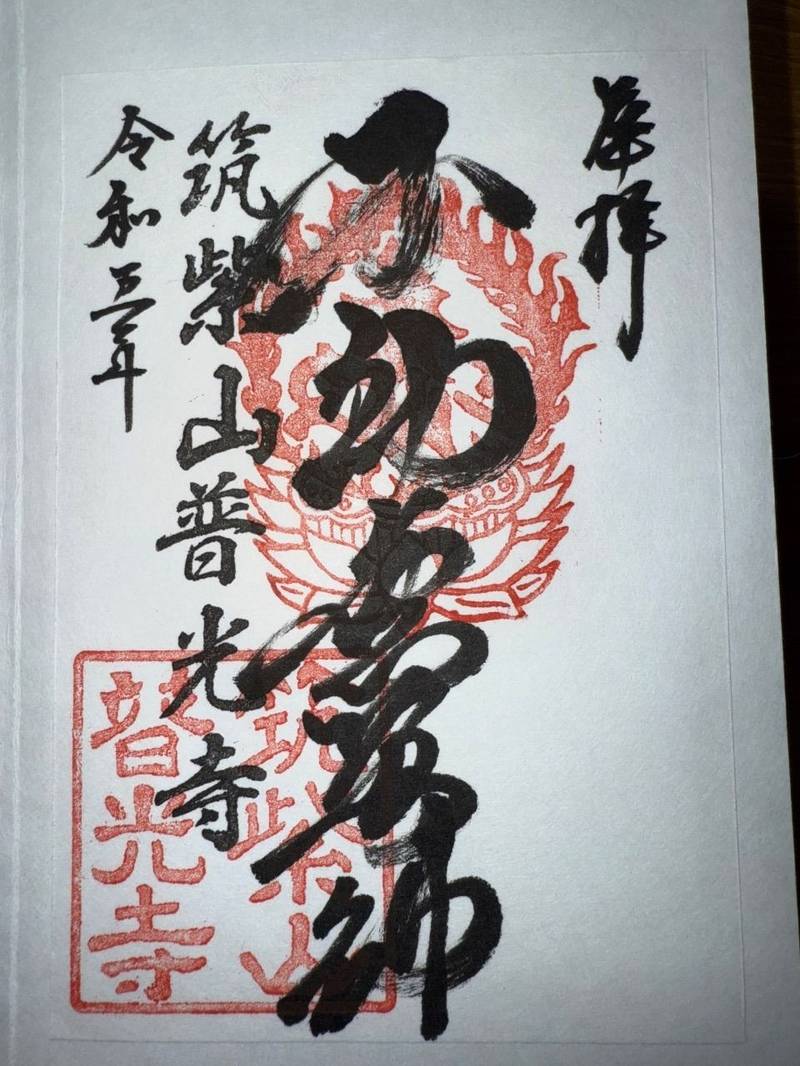 奉拝
不動
筑紫山普光寺
令和五年
筑紫山
普光寺